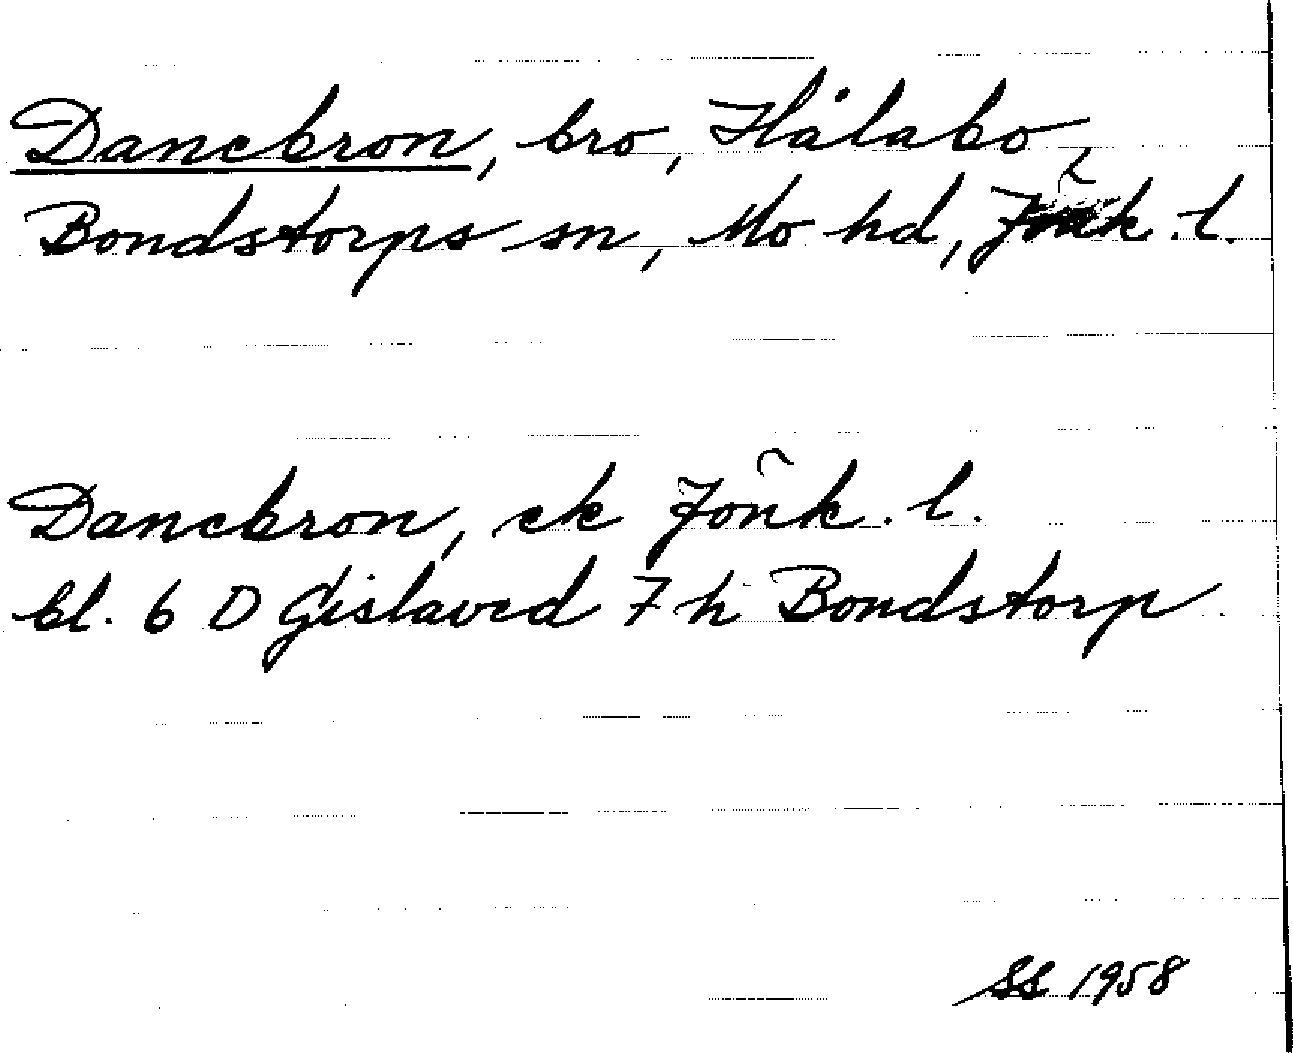 Danebron, bro, Hålabo,
Bondstorps sn, Mo hd, Jönk. l.
Danebron, ek Jönk. l.
bl. 6 D Gislaved 7 h Bondstorp
SS 1958